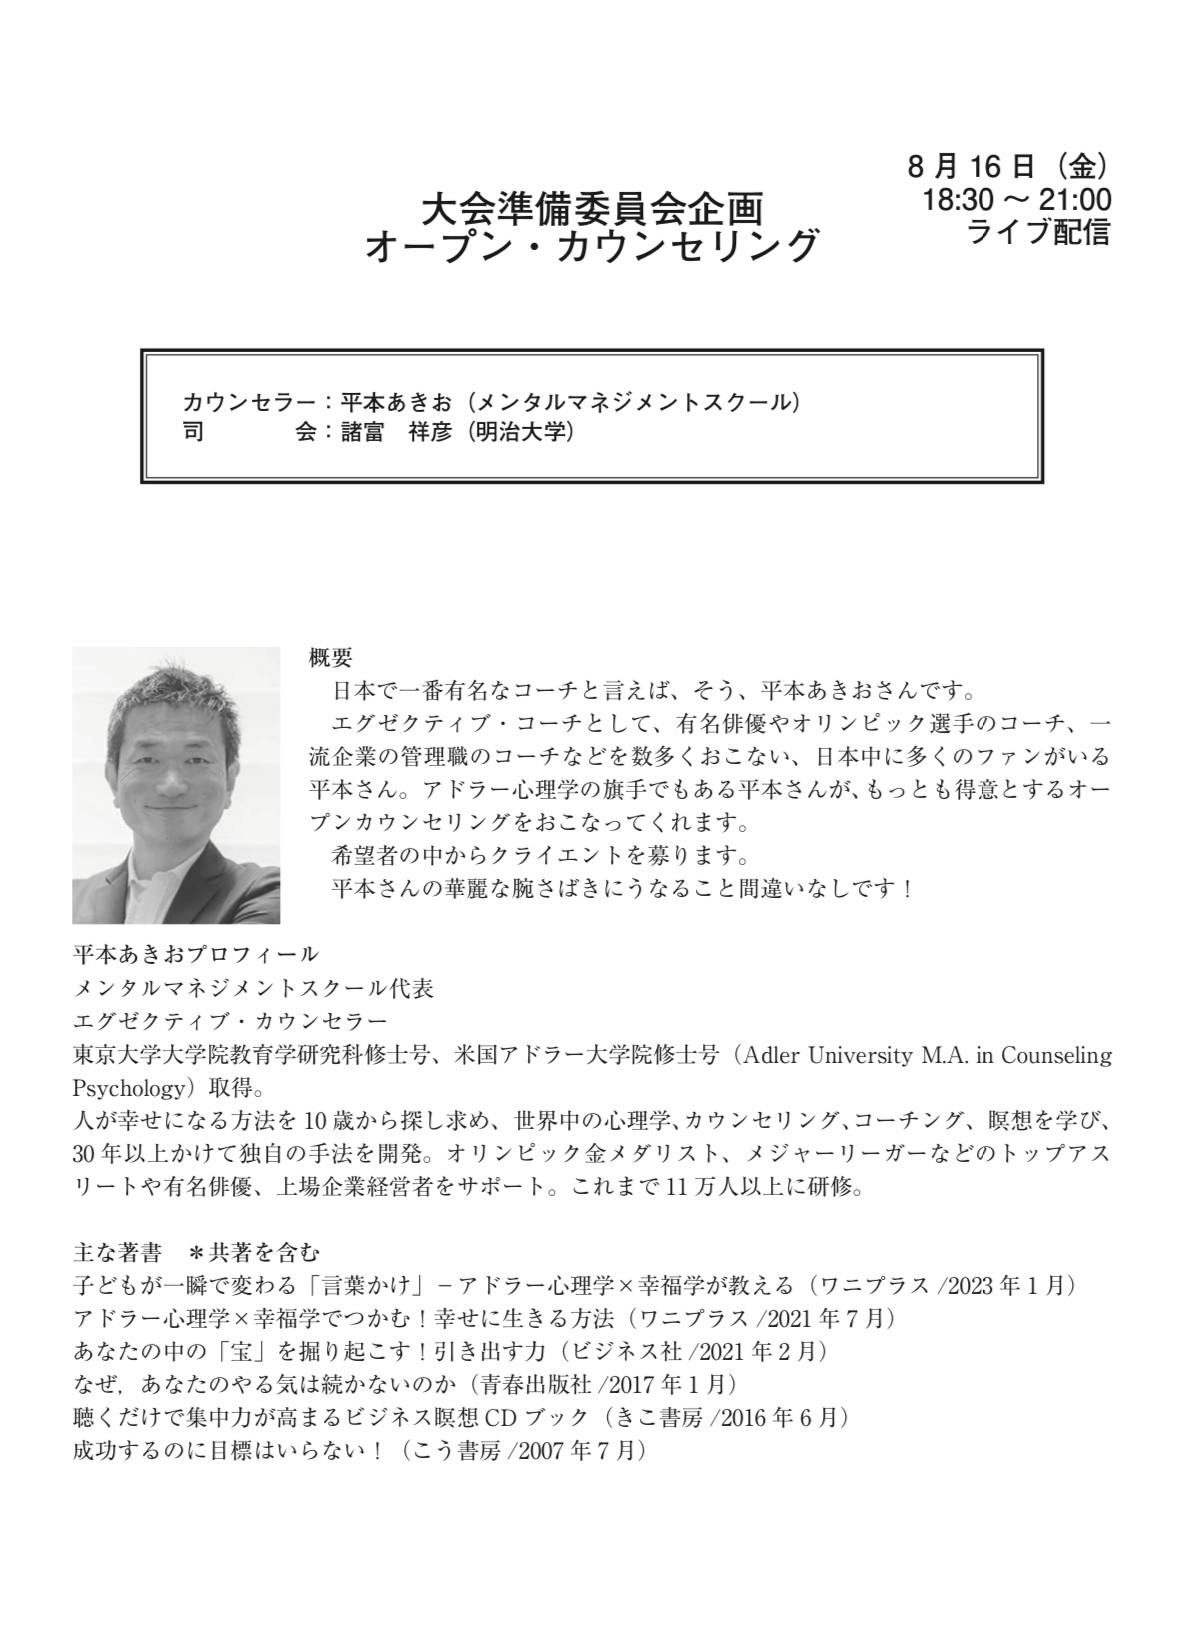 8 月 16 日（金）
18:30 ～ 21:00
ライブ配信
大会準備委員会企画
オープン・カウンセリング
カウンセラー：平本あきお（メンタルマネジメントスクール）
司　　　　会：諸富　祥彦（明治大学）
概要
　日本で一番有名なコーチと言えば、そう、平本あきおさんです。
　エグゼクティブ・コーチとして、有名俳優やオリンピック選手のコーチ、一
流企業の管理職のコーチなどを数多くおこない、日本中に多くのファンがいる
平本さん。アドラー心理学の旗手でもある平本さんが、もっとも得意とするオー
プンカウンセリングをおこなってくれます。
　希望者の中からクライエントを募ります。
　平本さんの華麗な腕さばきにうなること間違いなしです！
平本あきおプロフィール
メンタルマネジメントスクール代表
エグゼクティブ・カウンセラー
東京大学大学院教育学研究科修士号、米国アドラー大学院修士号（Adler University M.A. in Counseling
Psychology）取得。
人が幸せになる方法を 10 歳から探し求め、世界中の心理学、カウンセリング、コーチング、瞑想を学び、
30 年以上かけて独自の手法を開発。オリンピック金メダリスト、メジャーリーガーなどのトップアス
リートや有名俳優、上場企業経営者をサポート。これまで 11 万人以上に研修。
主な著書　＊共著を含む
子どもが一瞬で変わる「言葉かけ」－アドラー心理学×幸福学が教える（ワニプラス /2023 年 1 月）
アドラー心理学×幸福学でつかむ！幸せに生きる方法（ワニプラス /2021 年 7 月）
あなたの中の「宝」を掘り起こす！引き出す力（ビジネス社 /2021 年 2 月）
なぜ，あなたのやる気は続かないのか（青春出版社 /2017 年 1 月）
聴くだけで集中力が高まるビジネス瞑想 CD ブック（きこ書房 /2016 年 6 月）
成功するのに目標はいらない！（こう書房 /2007 年 7 月）